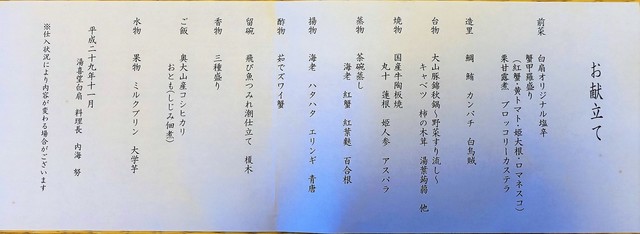 お献立て
前菜 白扇オリジナル塩辛
蟹甲羅盛り
（紅蟹・黄トマト・姫大根・ロマネスコ）
栗甘露煮 ブロッコリーカステラ
造里 鯛 鮪 カンパチ 白烏賊
台物 大山豚錦秋鍋～野菜すり流し～
キャベツ 柿の木茸 湯葉蒟蒻 他
焼物 国産牛陶板焼
丸十 蓮根 姫人参 アスパラ
蒸物 茶碗蒸し
海老 紅蟹 紅葉麩 百合根
揚物 海老 ハタハタ エリンギ 青唐
酢物 茹でズワイ蟹
留碗 飛び魚つみれ潮仕立て 榎木
香物 三種盛り
ご飯 奥大山産コシヒカリ
おとも(しじみ佃煮)
水物 果物 ミルクプリン 大学芋
平成二十九年十一月
湯喜望白扇 料理長 内海 努
※仕入状況により内容が変わる場合がございます